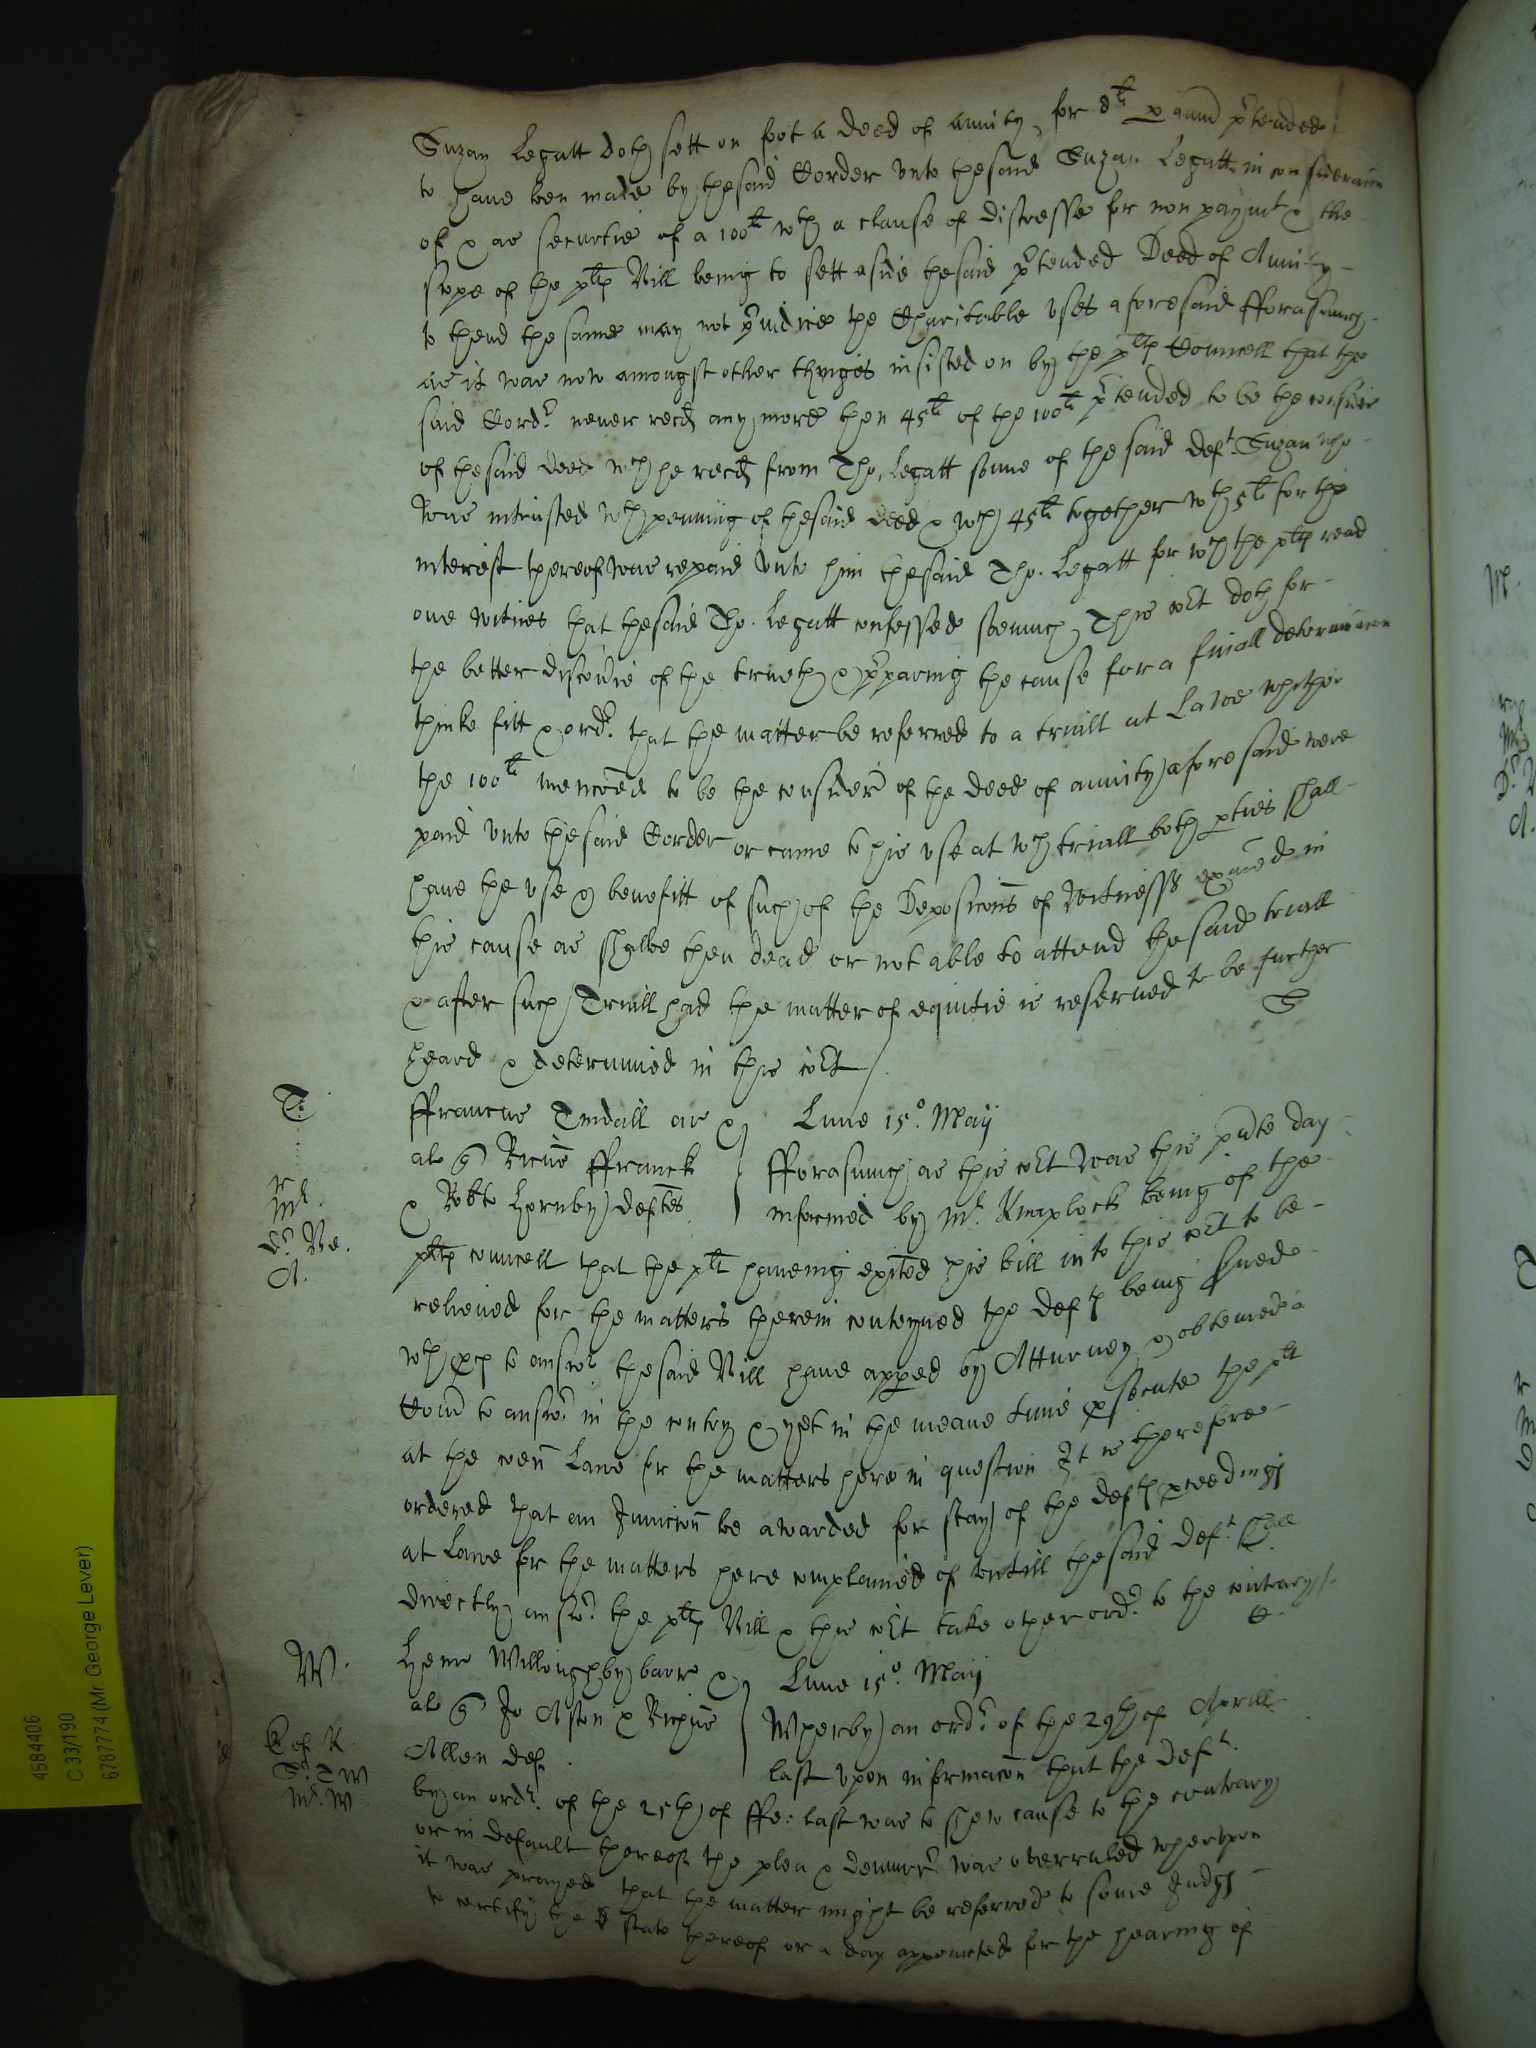 Suzan Legatt doth sett on foot a deed of Anuity for 8li p annu p'tended
to have ben made by thesaid Corder unto thesaid Suzan Legatt in consideracon
of & as securitie of a 100li wth a clause of distresse for non paymt & the
scope of the pltes Bill being to sett aside thesaid p'tended Deed of Anuity
to thend the same may not p'iudice the Charitable uses aforesaid fforasmuch
as it was now amongst other thinges insisted on by the pltes Councell that the
said Cord' never recd any more then 45li of the 100li p'tended to be the consider
of thesaid deed wch he recd from Tho. Legatt sonne of the said deft Suzan who
was intrusted wth penning of thesaid deed & wch 45li together wth 5li for the
interest thereof was repaid unto him thesaid Tho. Legatt for wch the pltes read
one witnes that thesaid Tho. Legatt confessed soemuch This Cort doth for
the better discov'ie of the trueth & p'paring the cause for a finall determinacon
thinke fitt & ord' that the matter be referred to a triall at Lawe whither
the 100li menconed to be the consider' of the deed of anuity aforesaid were
paid unto thesaid Corder or came to his use at wch triall both pties shall
have the use & benefitt of such of the Deposicons of Witnesses exaied in
this cause as shalbe then dead or not able to attend thesaid triall
& after such Triall had the matter of equitie is reserved to be further
heard & determined in this Cort
T
ffrancus Tindall ar &
Lune 15o Maij
al' q Ricus ffranck
fforasmuch as this Cort was this p'nte day
& Robte Hornby deftes
informed by Mr. Knaplock being of the
pltes councell that the plt haveing exited his bill into this Cort to be
relieved for the matters therein conteyned the deftes being served
wth pces to answ' thesaid Bill have apped by Atturney & obteined a
Com to answ' in the contry & yet in the meane time psecute the plt
at the coen Lawe for the matters here in question It is therefore
ordered that an Iniuncon be awarded for stay of the deftes pceedings
at Lawe for the matters here complained of untill thesaid deft shall
directly answ' the pltes Bill & this Cort take other ord' to the contrary
W.
Henr Willoughby barr &
Lune 15o Maij
al' q Jo Aston & Richus
Wherby an ord' of the 29th of Aprill
Allen def
last upon informacon that the deft
by an ord' of the 25th of ffe: last was to shew cause to the contrary
or in default thereof the plea & demurr' was overruled wherupon
it was prayed that the matter might be referred to some Judges
to certify the state thereof or a day appointed for the hearing of
4584406
C 33/190
6787774 (Mr. George Lever)